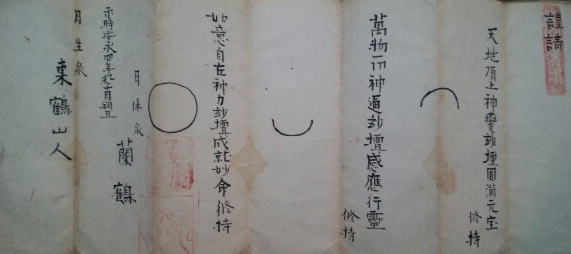 謹請
天地頂上神變妙壇圓滿元宝
修持
萬物一所神通妙壇感應行靈
修持
如意自在神力妙壇成就妙命修持
月体象
蘭鶴
示時安永四年
十月朔旦
月生象
東鶴山人